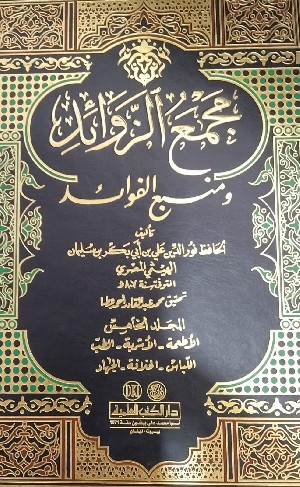 مجمع الزوائد
ومنبع الفوائد
تأليف
الحافظ نور الدين علي بن أبي بكر بن سليمان
الهيثمي المصري
المتوفى سنة ٨٠٧ هـ
تحقيق محمد عبد القادر أحمد عطا
المجلد الخامس
الأطعمة - الأشربة - الطب
اللباس - الخلافة - الجهاد
دار الكتب العلمية
أسسها محمد علي بيضون سنة 1971
بيروت - لبنان